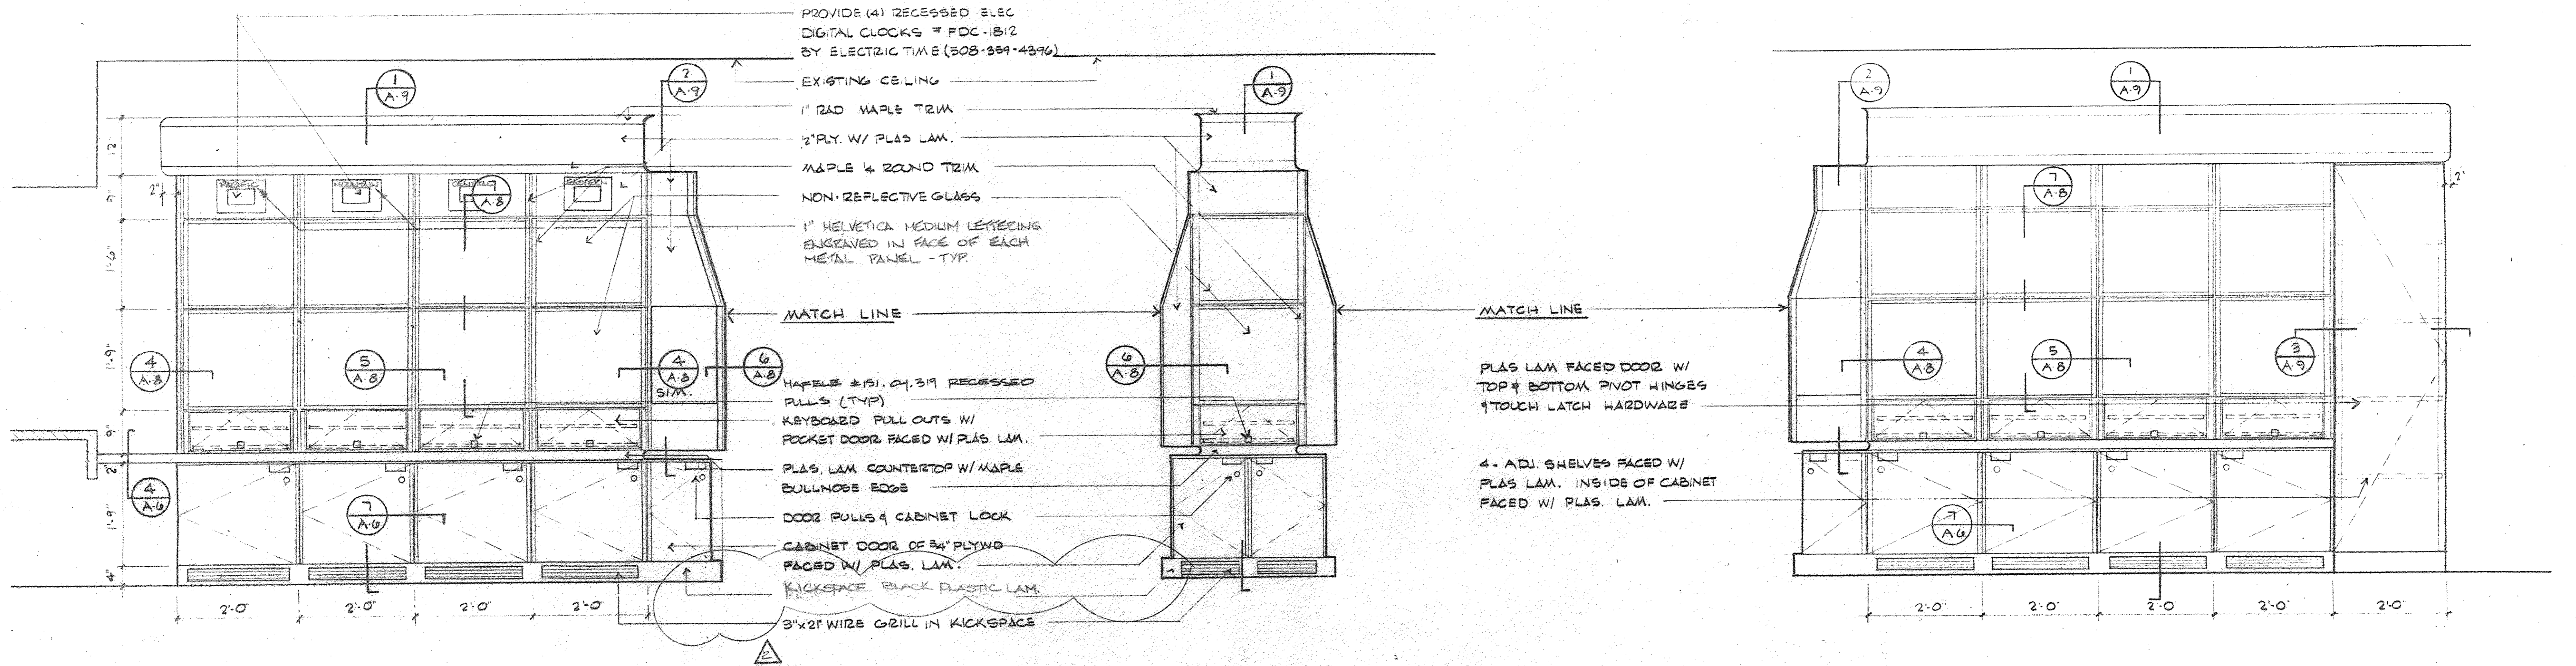 PROVIDE (4) RECESSED ELEC
DIGITAL CLOCKS # FDC-1812
BY ELECTRIC TIME (508-359-4396)
EXISTING CEILING
1" RAD MAPLE TRIM
1/2" PLY. W/ PLAS LAM.
MAPLE 1/4 ROUND TRIM
NON-REFLECTIVE GLASS
1" HELVETICA MEDIUM LETTERING
ENGRAVED IN FACE OF EACH
METAL PANEL - TYP.
MATCH LINE
HAFELE #151.04.319 RECESSED
PULLS (TYP)
KEYBOARD PULL OUTS W/
POCKET DOOR FACED W/ PLAS LAM.
PLAS. LAM COUNTERTOP W/ MAPLE
BULLNOSE EDGE
DOOR PULLS & CABINET LOCK
CABINET DOOR OF 3/4" PLYWD
FACED W/ PLAS. LAM.
KICKSPACE BLACK PLASTIC LAM.
3"x21" WIRE GRILL IN KICKSPACE
2
1
A.9
2
A.9
PACIFIC
MOUNTAIN
CENTRAL
EASTERN
7
A.8
12
2"
9"
1'-6"
1'-9"
9"
2"
1'-9"
4"
4
A.8
5
A.8
4
A.8
SIM.
6
A.8
4
A.6
7
A.6
2'-0"
2'-0"
2'-0"
2'-0"
1
A.9
6
A.8
MATCH LINE
PLAS LAM FACED DOOR W/
TOP & BOTTOM PIVOT HINGES
& TOUCH LATCH HARDWARE
4 - ADJ. SHELVES FACED W/
PLAS. LAM. INSIDE OF CABINET
FACED W/ PLAS. LAM.
2
A.9
1
A.9
7
A.8
2"
4
A.8
5
A.8
3
A.9
7
A.6
2'-0"
2'-0"
2'-0
2'-0"
2'-0"